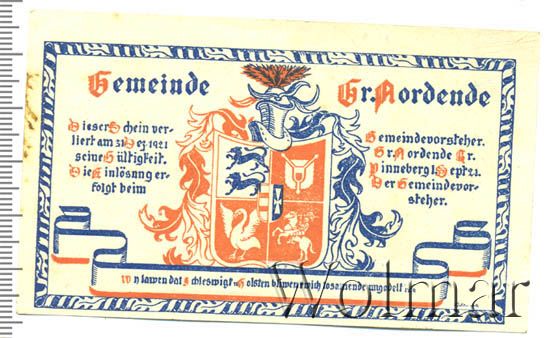 Gemeinde Gr. Nordende
Dieser Schein ver-
liert am 31 Dez. 1921
seine Gültigkeit.
Die Einlösung er-
folgt beim
Gemeindevorsteher.
Gr. Nordende Kr.
Pinneberg 1 Sept 21.
Der Gemeindevor-
steher.
Wy lawen dat Schleswigk un Holsten bliwen ewich tosamende ungedelt
Wolmar